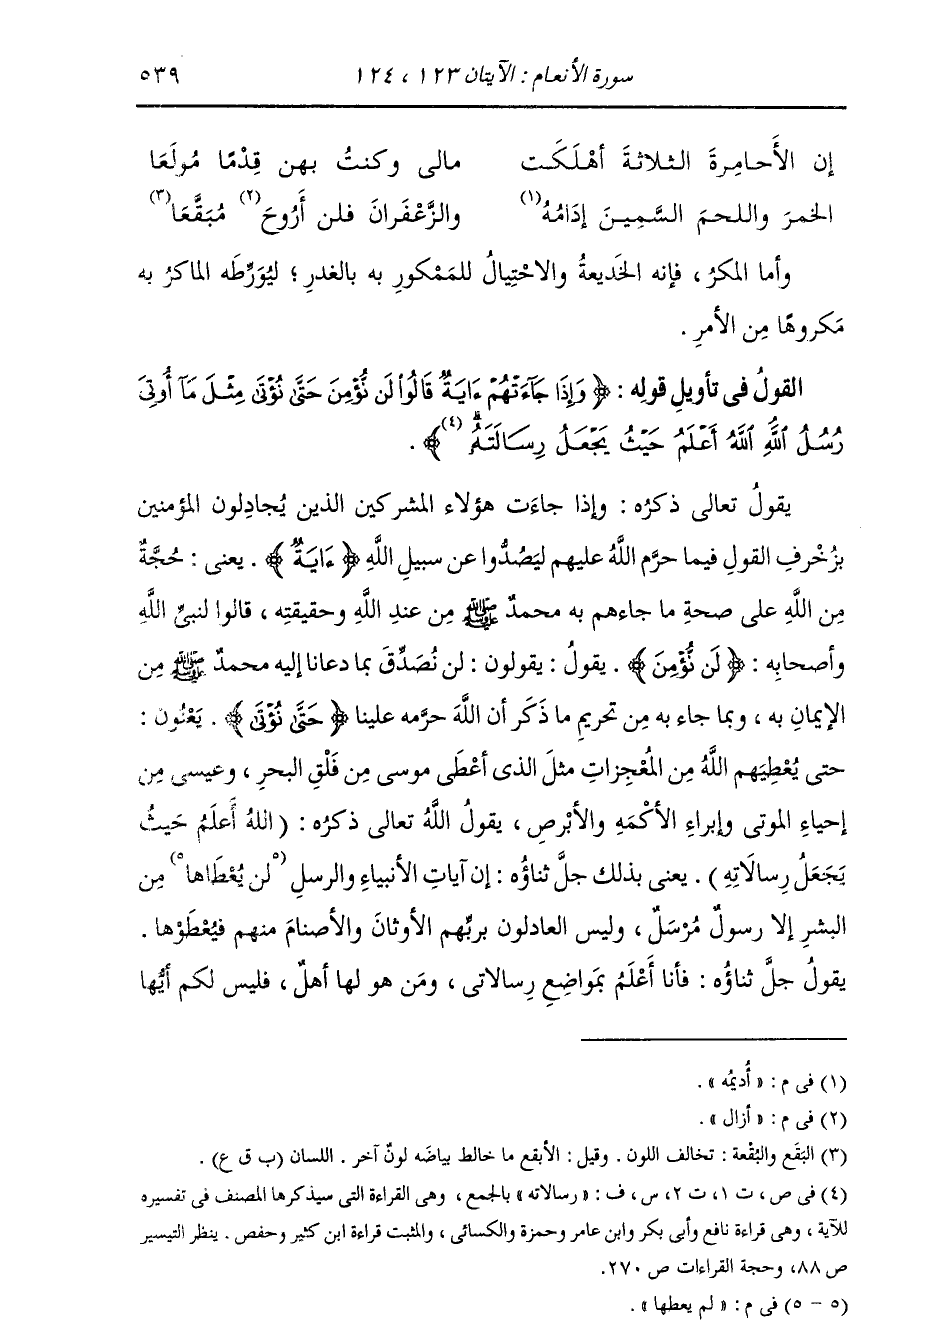 سورة الأنعام : الآيتان ١٢٣ ، ١٢٤ ٥٣٩
إن الأَحامِرةَ الثلاثةَ أهْلَكَت مالى وكنتُ بهن قِدْمًا مُولَعَا
الخمرَ واللحمَ السَّمِينَ إدَامُهُ(١) والزَّعْفَرانَ فلن أَرُوحَ(٢) مُبَقَّعَا(٣)
وأما المكرُ ، فإنه الخَديعةُ والاحْتِيالُ للمَمْكورِ به بالغدرِ ؛ ليُوَرِّطَه الماكرُ به
مَكروهًا مِن الأمرِ .
القولُ فى تأويلِ قولِه : ﴿ وَإِذَا جَآءَتْهُمْ ءَايَةٌ قَالُوا۟ لَن نُّؤْمِنَ حَتَّىٰ نُؤْتَىٰ مِثْلَ مَآ أُوتِىَ
رُسُلُ ٱللَّهِ ٱللَّهُ أَعْلَمُ حَيْثُ يَجْعَلُ رِسَالَتَهُۥ(٤)﴾ .
يقولُ تعالى ذكرُه : وإذا جاءَت هؤلاء المشركين الذين يُجادِلون المؤمنين
بزُخْرفِ القولِ فيما حرَّم اللَّهُ عليهم ليَصُدُّوا عن سبيلِ اللَّهِ ﴿ ءَايَةٌ ﴾ . يعنى : حُجَّةٌ
مِن اللَّهِ على صحةِ ما جاءهم به محمدٌ ﷺ مِن عندِ اللَّهِ وحقيقتِه ، قالوا لنبىِّ اللَّهِ
وأصحابِه : ﴿ لَن نُّؤْمِنَ ﴾ . يقولُ : يقولون : لن نُصَدِّقَ بما دعانا إليه محمدٌ ﷺ مِن
الإيمانِ به ، وبما جاء به مِن تحريمِ ما ذَكَر أن اللَّهَ حرَّمه علينا ﴿ حَتَّىٰ نُؤْتَىٰ ﴾ . يَعْنُون :
حتى يُعْطِيَهم اللَّهُ مِن المُعْجِزاتِ مثلَ الذى أعْطَى موسى مِن فَلْقِ البحرِ ، وعيسى مِن
إحياءِ الموتى وإبراءِ الأكْمَهِ والأبْرصِ ، يقولُ اللَّهُ تعالى ذكرُه : ( اللهُ أَعلَمُ حَيثُ
يَجَعَلُ رِسالَاتِهِ ) . يعنى بذلك جلَّ ثناؤُه : إن آياتِ الأنبياءِ والرسلِ (٥لن يُعْطَاها٥) مِن
البشرِ إلا رسولٌ مُرْسَلٌ ، وليس العادلون بربِّهم الأوثانَ والأصنامَ منهم فيُعْطَوْها .
يقولُ جلَّ ثناؤُه : فأنا أَعْلَمُ بمَواضِعِ رِسالاتى ، ومَن هو لها أهلٌ ، فليس لكم أيُّها
(١) فى م : « أُديمُه » .
(٢) فى م : « أزال » .
(٣) البَقَع والبُقْعة : تخالف اللون . وقيل : الأبقع ما خالط بياضَه لونٌ آخر . اللسان (ب ق ع) .
(٤) فى ص ، ت ١، ت ٢، س ، ف : « رسالاته » بالجمع ، وهى القراءة التى سيذكرها المصنف فى تفسيره
للآية ، وهى قراءة نافع وأبى بكر وابن عامر وحمزة والكسائى ، والمثبت قراءة ابن كثير وحفص . ينظر التيسير
ص ٨٨، وحجة القراءات ص ٢٧٠.
(٥ - ٥) فى م : « لم يعطها » .